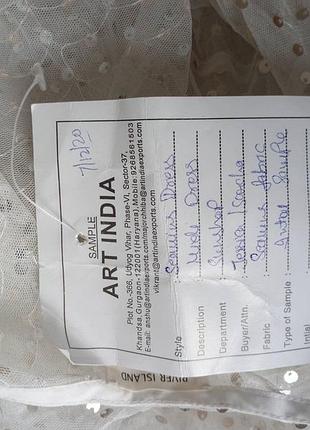 7/12/20
SAMPLE
ART INDIA
Plot No.-366, Udyog Vihar, Phase-VI, Sector-37,
Khandsa, Gurgaon-122001(Haryana), Mobile:9268561503
E-mail: anshu@artindiaexports.com/majorchhiba@artindiaexports.com
vikrant@artindiaexports.com
Style Sequins Dress
Description Midi Dress
Department
Buyer/Attn. Jessica
Fabric Sequins fabric
Type of Sample : Initial Sample
Initial
RIVER ISLAND